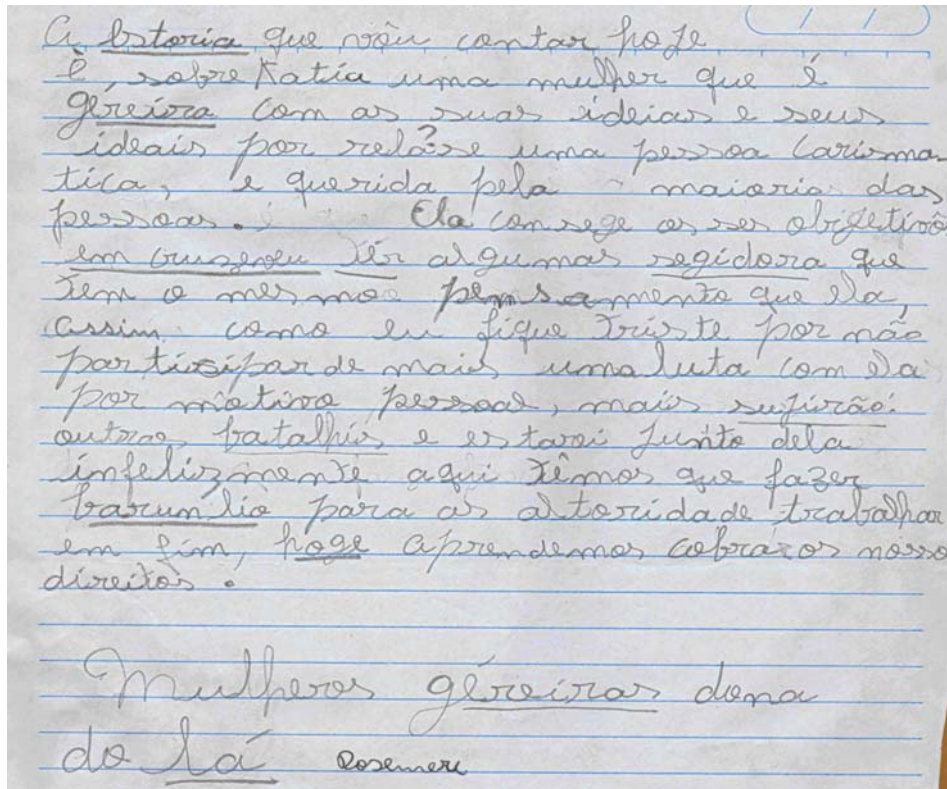 A Istoria que vou contar hoje
è, sobre Katia uma mulher que é
géreira com as suas ideias e seus
ideais por relásê? uma pessoa Carisma-
tica, e querida pela maioria das
pessoas. é Ela consege os ses objetivo
em têr algumas segidora que
tem o mesmo pensamento que ela,
assim como eu fique triste por não
participar de mais uma luta com ela
por mòtivo pessoal, mais sugirão
outras batalhis e estarei junto dela
infelizmente aqui têmos que fazer
barunlio para as altoridade trabalhar
em fim, hoge aprendemos cobrar os nosso
direitos.
Mulheres géreiras dona
do lá Rosemere